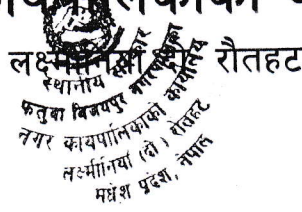 लक्ष्मीनिया (दो) रौतहट
स्थानीय सरकार
फतुवा बिजयपुर नगरपालिका
नगर कार्यपालिकाको कार्यालय
लक्ष्मीनियाँ (दो) रौतहट
मधेश प्रदेश, नेपाल